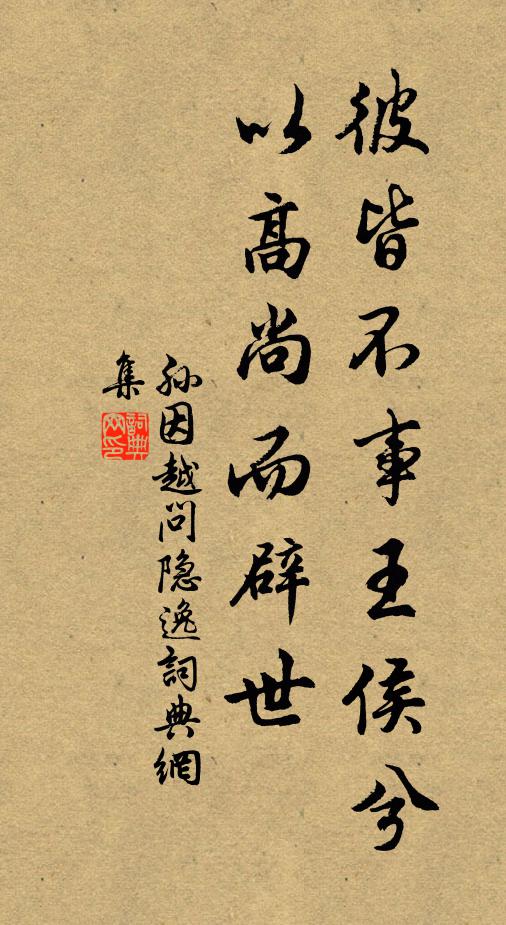 彼皆不事王侯兮
以高尚而辟世
孙因越问隐逸詞典網
集
詞典网印